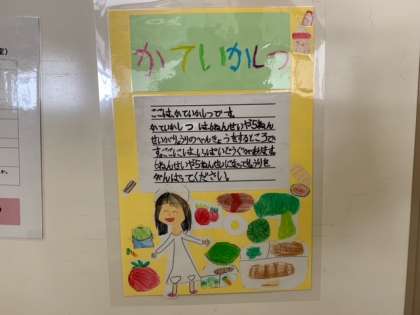 かていかしつ
ここは、かていかしつです。
かていかしつは6ねんせいや5ねん
せいがりょうりのべんきょうをするところで
す。ここにはいっぱいどうぐがあります
6ねんせいや5ねんせいになってりょうりを
がんばってください。